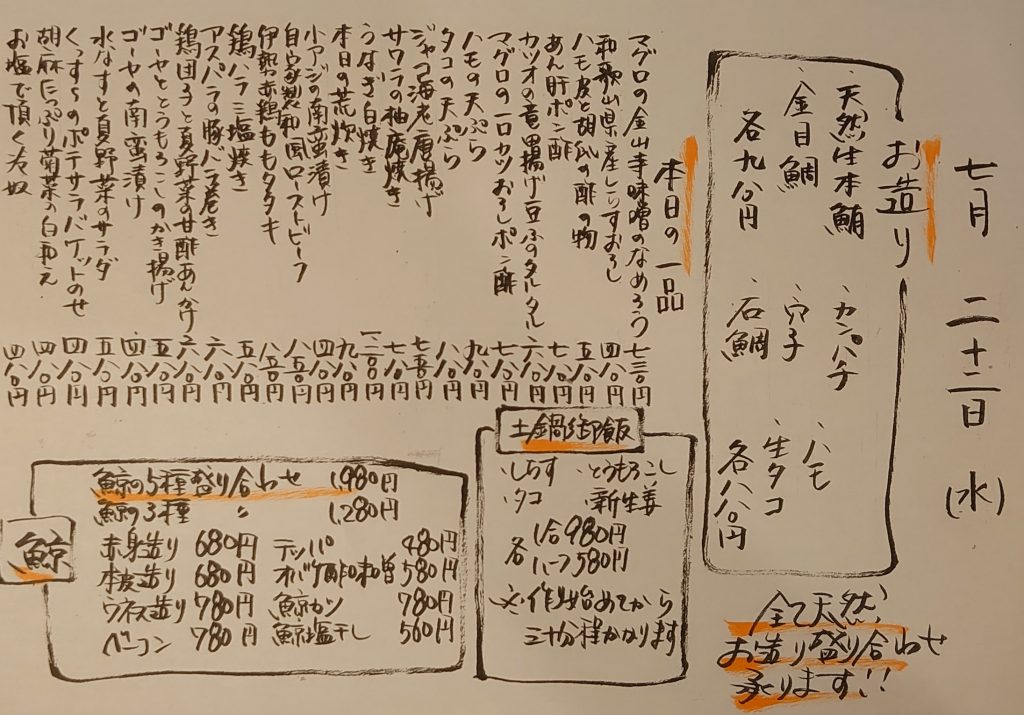 七月 二十二日 (水)
お造り
・天然生本鮪 ・カンパチ ・ハモ
・金目鯛 ・穴子 ・生タコ
各九八〇円 ・石鯛 各八八〇円
全て天然、
お造り盛り合わせ
承ります!!
本日の一品
マグロの金山寺味噌のなめろう 七三〇円
和歌山県産しらすおろし 四八〇円
ハモ皮と胡瓜の酢の物 五八〇円
あん肝ポン酢 七八〇円
カツオの竜田揚げ豆ふのタルタル 六八〇円
マグロの一口カツおろしポン酢 七八〇円
ハモの天ぷら 九八〇円
タコの天ぷら 八八〇円
ジャコ海老唐揚げ 七五〇円
サワラの柚庵焼き 七八〇円
うなぎ白焼き
本日の荒炊き 九八〇円
小アジの南蛮漬け 四八〇円
自家製和風ローストビーフ 八五〇円
伊勢赤鶏ももタタキ 八五〇円
鶏ハラミ塩焼き 五八〇円
アスパラの豚バラ巻き 六八〇円
鶏団子と夏野菜の甘酢あんかけ 六八〇円
ゴーヤととうもろこしのかき揚げ 五八〇円
ゴーヤの南蛮漬け 四八〇円
水なすと夏野菜のサラダ 五八〇円
ポテサラバケットのせ 四八〇円
胡麻たっぷり菊菜の白和え 四八〇円
お塩で頂く冷奴 四八〇円
土鍋御飯
・しらす ・とうもろこし
・タコ ・新生姜
各 1合980円
ハーフ580円
※作り始めてから
三十分程かかります
鯨
鯨の5種盛り合わせ 1,980円
鯨の3種 〃 1,280円
赤身造り 680円 テッパ 480円
本皮造り 680円 オバケ酢味噌 580円
ウネス造り 780円 鯨カツ 780円
ベーコン 780円 鯨塩干し 560円